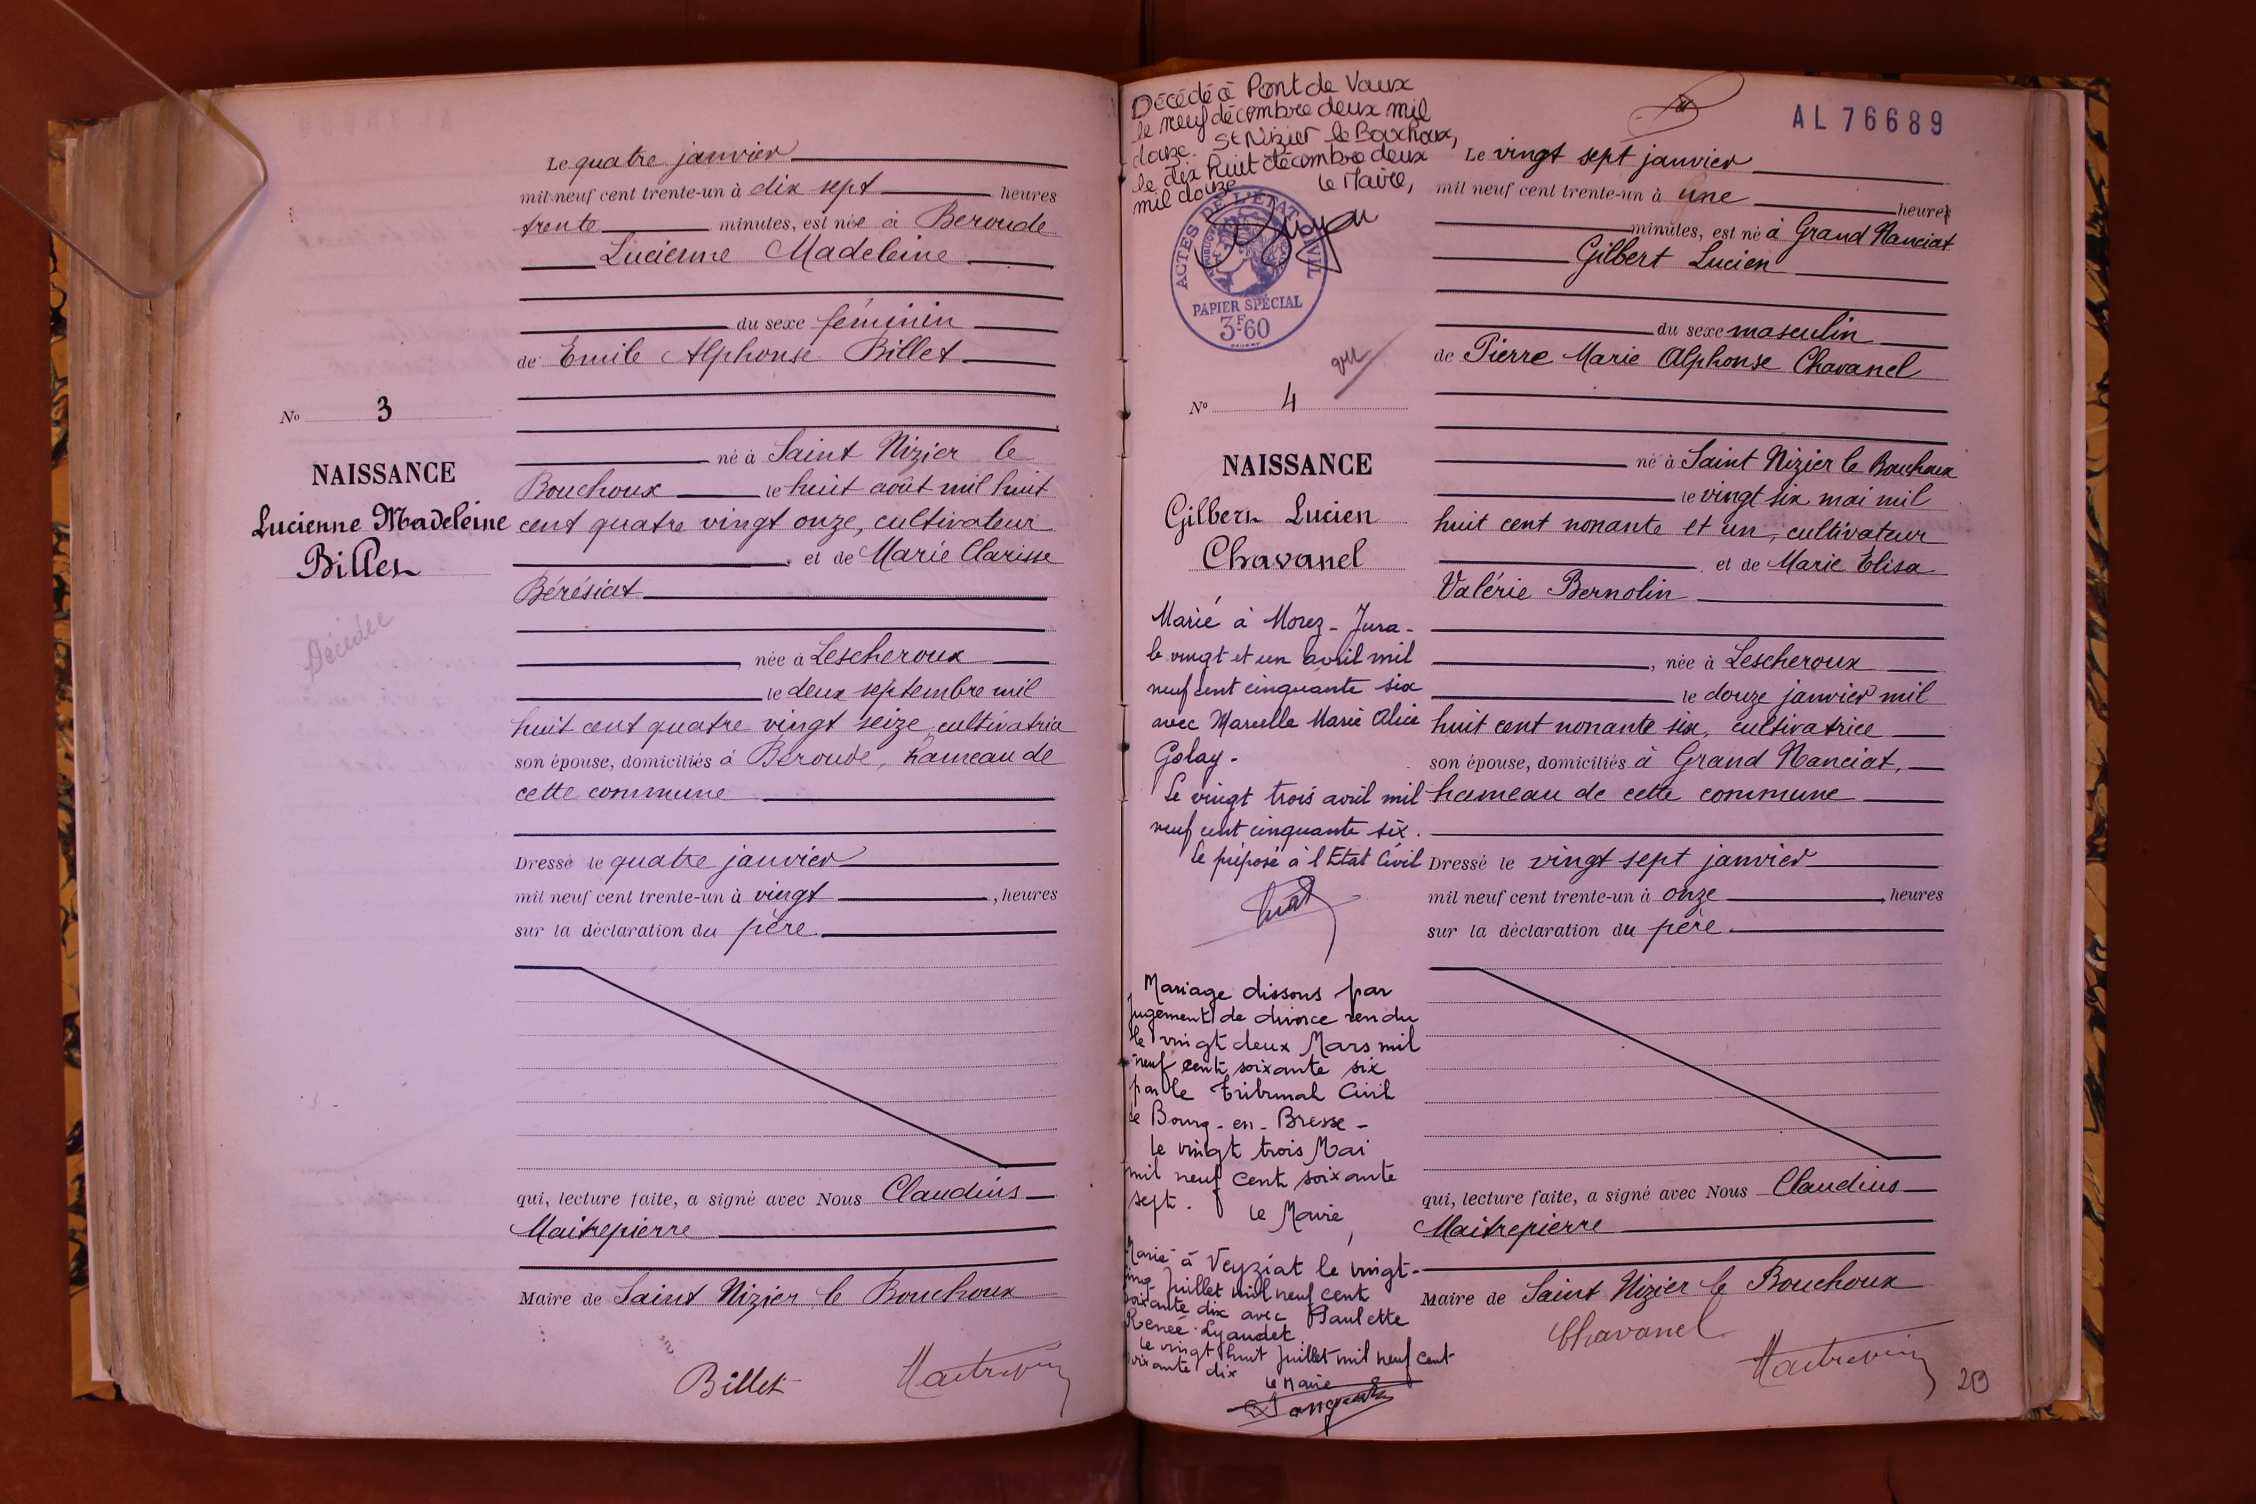 Le quatre janvier
mil neuf cent trente-un à dix sept heures
trente minutes, est née à Beroude
Lucienne Madeleine
du sexe féminin
de Emile Alphonse Billet
No 3
NAISSANCE
Lucienne Madeleine
Billet
Décédée
né à Saint Nizier le
Bouchoux le huit août mil huit
cent quatre vingt onze, cultivateur
et de Marie Clarisse
Bérésiat
née à Lescheroux
le deux septembre mil
huit cent quatre vingt seize cultivatrice
son épouse, domiciliés à Béroude, hameau de
cette commune
Dressé le quatre janvier
mil neuf cent trente-un à vingt , heures
sur la déclaration du père
qui, lecture faite, a signé avec Nous Claudius
Maitrepierre
Maire de Saint Nizier le Bouchoux
Billet
AL 76689
Décédé à Pont de Vaux
le neuf décembre deux mil
douze. St Nizier le Bouchoux,
le dix huit décembre deux
mil douze le Maire,
ACTES DE L'ETAT CIVIL
PAPIER SPÉCIAL
3F60
vu
No 4
NAISSANCE
Gilbert Lucien
Chavanel
Marié à Morez - Jura -
le vingt et un avril mil
neuf cent cinquante six
avec Marcelle Marie Alice
Golay -
Le vingt trois avril mil
neuf cent cinquante six.
Le préposé à l'Etat Civil
Mariage dissous par
Jugement de divorce rendu
le vingt deux Mars mil
neuf cent soixante six
par le Tribunal Civil
de Bourg - en - Bresse -
Le vingt trois Mai
mil neuf cent soixante
sept. Le Maire,
Marié à Veyziat le vingt-
cinq Juillet mil neuf cent
soixante dix avec Paulette
Renée Lyaudet
Le vingt huit Juillet mil neuf cent
soixante dix Le Maire
Le vingt sept janvier
mil neuf cent trente-un à une heure
minutes, est né à Grand Nanciat
Gilbert Lucien
du sexe masculin
de Pierre Marie Alphonse Chavanel
né à Saint Nizier le Bouchoux
le vingt six mai mil
huit cent nonante et un, cultivateur
et de Marie Elisa
Valérie Bernolin
, née à Lescheroux
le douze janvier mil
huit cent nonante six, cultivatrice
son épouse, domiciliés à Grand Nanciat,
hameau de cette commune
Dressé le vingt sept janvier
mil neuf cent trente-un à onze , heures
sur la déclaration du père
qui, lecture faite, a signé avec Nous Claudius
Maitrepierre
Maire de Saint Nizier le Bouchoux
Chavanel
20